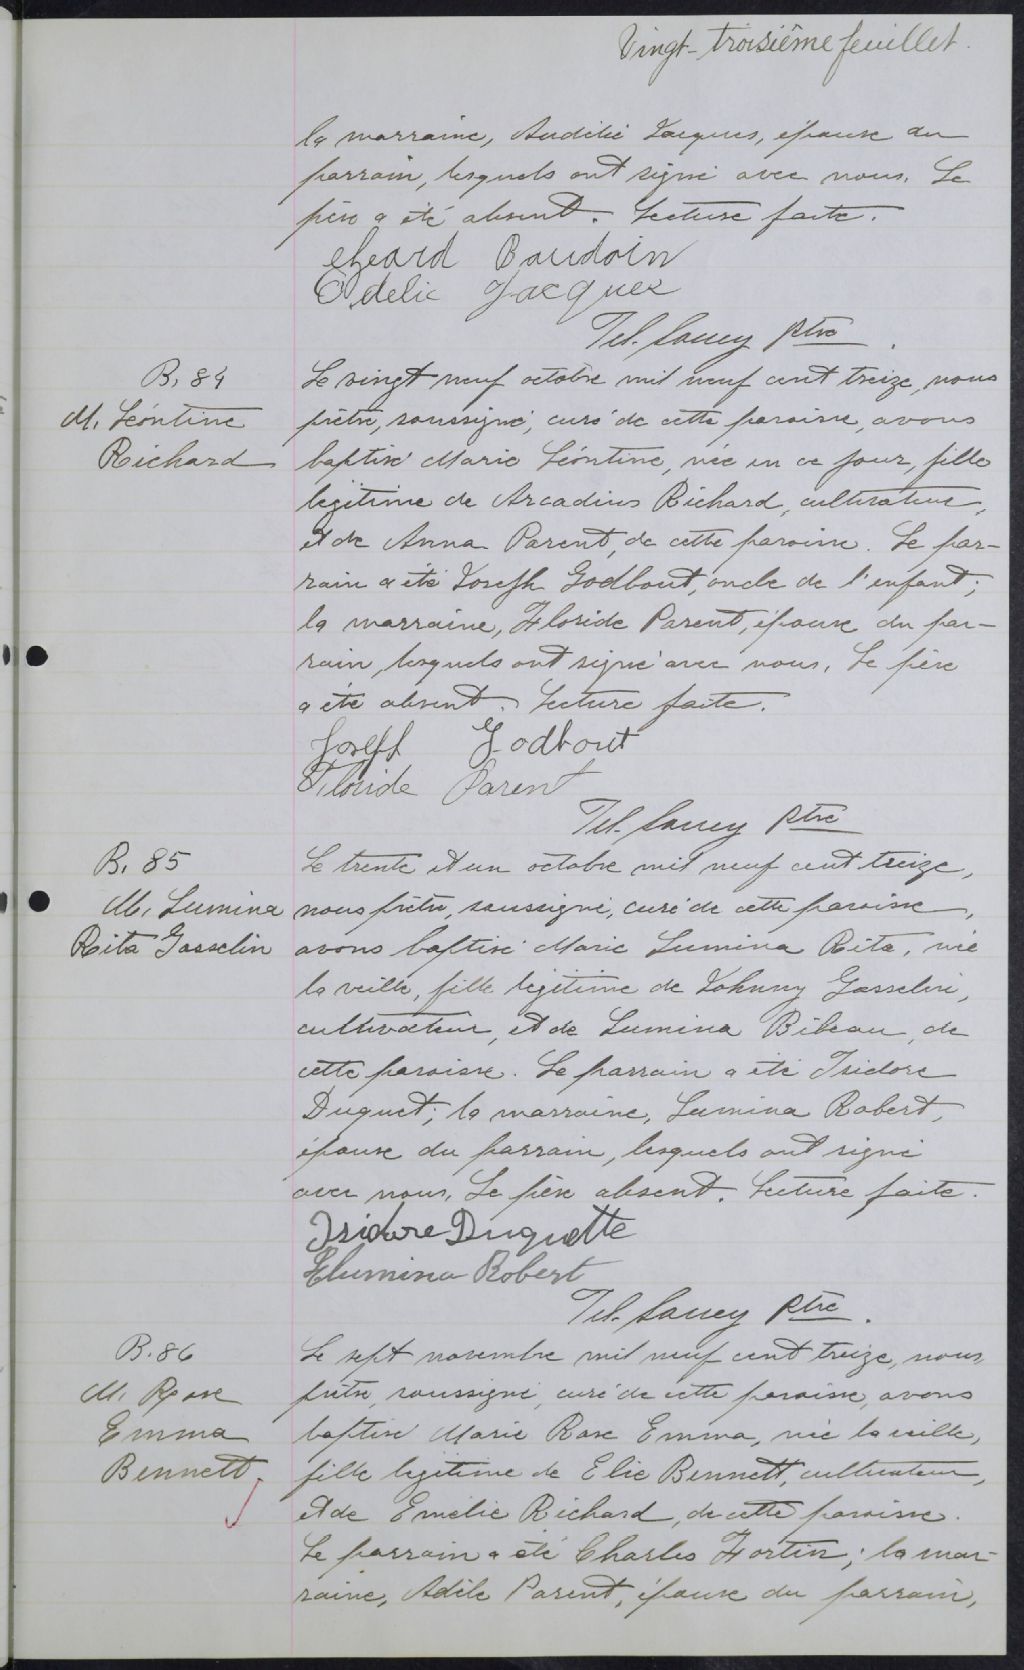 Vingt-troisième feuillet.
la marraine, Audélie Jacques, épouse du
parrain, lesquels ont signé avec nous. Le
père a été absent. Lecture faite.
Odelie Jacques
ptre
B. 84
M. Léontine
Richard
Le vingt neuf octobre mil neuf cent treize, nous
prêtre, soussigné, curé de cette paroisse, avons
baptisé Marie Léontine, née en ce jour, fille
légitime de Arcadius Richard, cultivateur,
et de Anna Parent, de cette paroisse. Le par-
rain a été Joseph Godbout, oncle de l'enfant;
la marraine, Floride Parent, épouse du par-
rain, lesquels ont signé avec nous. Le père
a été absent. Lecture faite.
Joseph Godbout
Floride Parent
ptre
B. 85
M. Lumina
Rita Gosselin
Le trente et un octobre mil neuf cent treize,
nous prêtre, soussigné, curé de cette paroisse,
avons baptisé Marie Lumina Rita, née
la veille, fille légitime de Johnny Gosselin,
cultivateur, et de Lumina Bibeau, de
cette paroisse. Le parrain a été Isidore
Duquet; la marraine, Lumina Robert,
épouse du parrain, lesquels ont signé
avec nous. Le père absent. Lecture faite.
Isidore Duquette
Elumina Robert
ptre.
B. 86
M. Rose
Emma
Bennett
Le sept novembre mil neuf cent treize, nous
prêtre, soussigné, curé de cette paroisse, avons
baptisé Marie Rose Emma, née la veille,
fille légitime de Elie Bennett, cultivateur,
et de Emélie Richard, de cette paroisse.
Le parrain a été Charles Fortin; la mar-
raine, Adèle Parent, épouse du parrain,